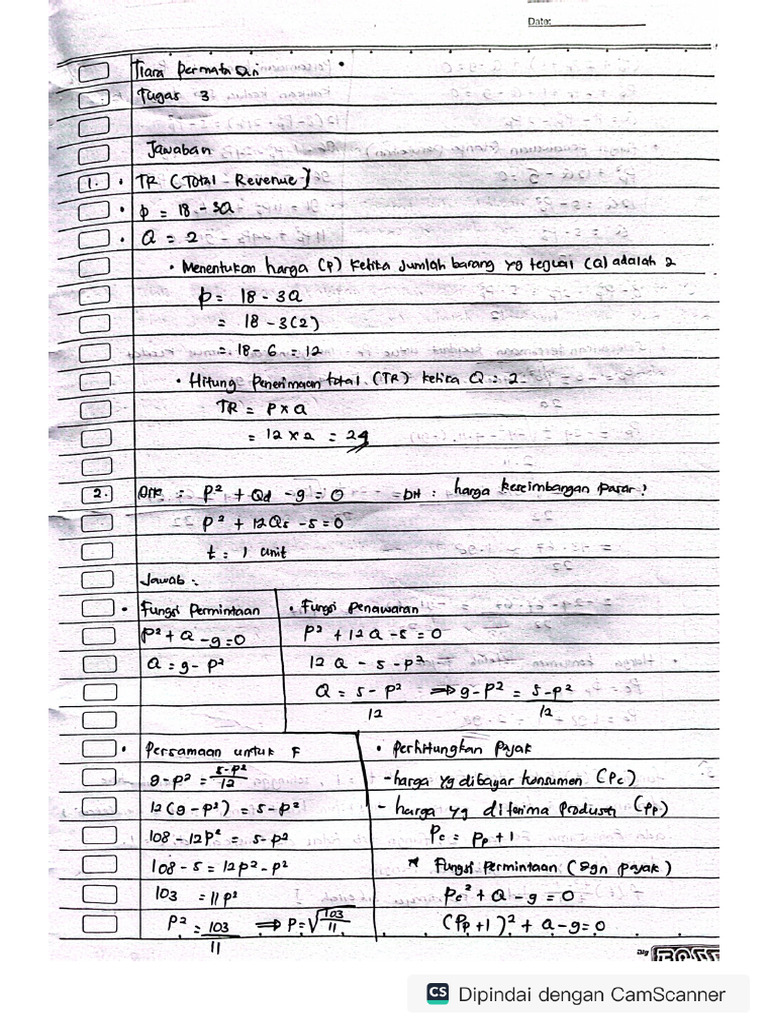 Date:
Tiara Permata Din
Tugas 3
Jawaban
1. • TR (Total - Revenue)
• p = 18 - 3Q
• Q = 2
• Menentukan harga (P) ketika Jumlah barang yg terjual (Q) adalah 2
p = 18 - 3Q
= 18 - 3(2)
= 18 - 6 = 12
• Hitung Penerimaan total (TR) ketika Q = 2
TR = P x Q
= 12 x 2 = 24
2. Dik : P² + Qd - 9 = 0 = DH : harga keseimbangan Pasar?
P² + 12Qs - 5 = 0
t = 1 unit
Jawab :
• Fungsi Permintaan
P² + Q - 9 = 0
Q = 9 - P²
• Fungsi Penawaran
P² + 12Q - 5 = 0
12 Q - 5 - P²
Q = 5 - P² / 12 ⇒ 9 - P² = 5 - P² / 12
• Persamaan untuk F
9 - P² = 5 - P² / 12
12 (9 - P²) = 5 - P²
108 - 12P² = 5 - P²
108 - 5 = 12P² - P²
103 = 11 P²
P² = 103 / 11 ⇒ P = √103 / 11
• Perhitungkan Pajak
- harga yg dibayar konsumen (Pc)
- harga yg diterima Produsen (Pp)
Pc = Pp + 1
* Fungsi Permintaan (dgn pajak)
Pc² + Q - 9 = 0
(Pp + 1)² + Q - 9 = 0
CS Dipindai dengan CamScanner